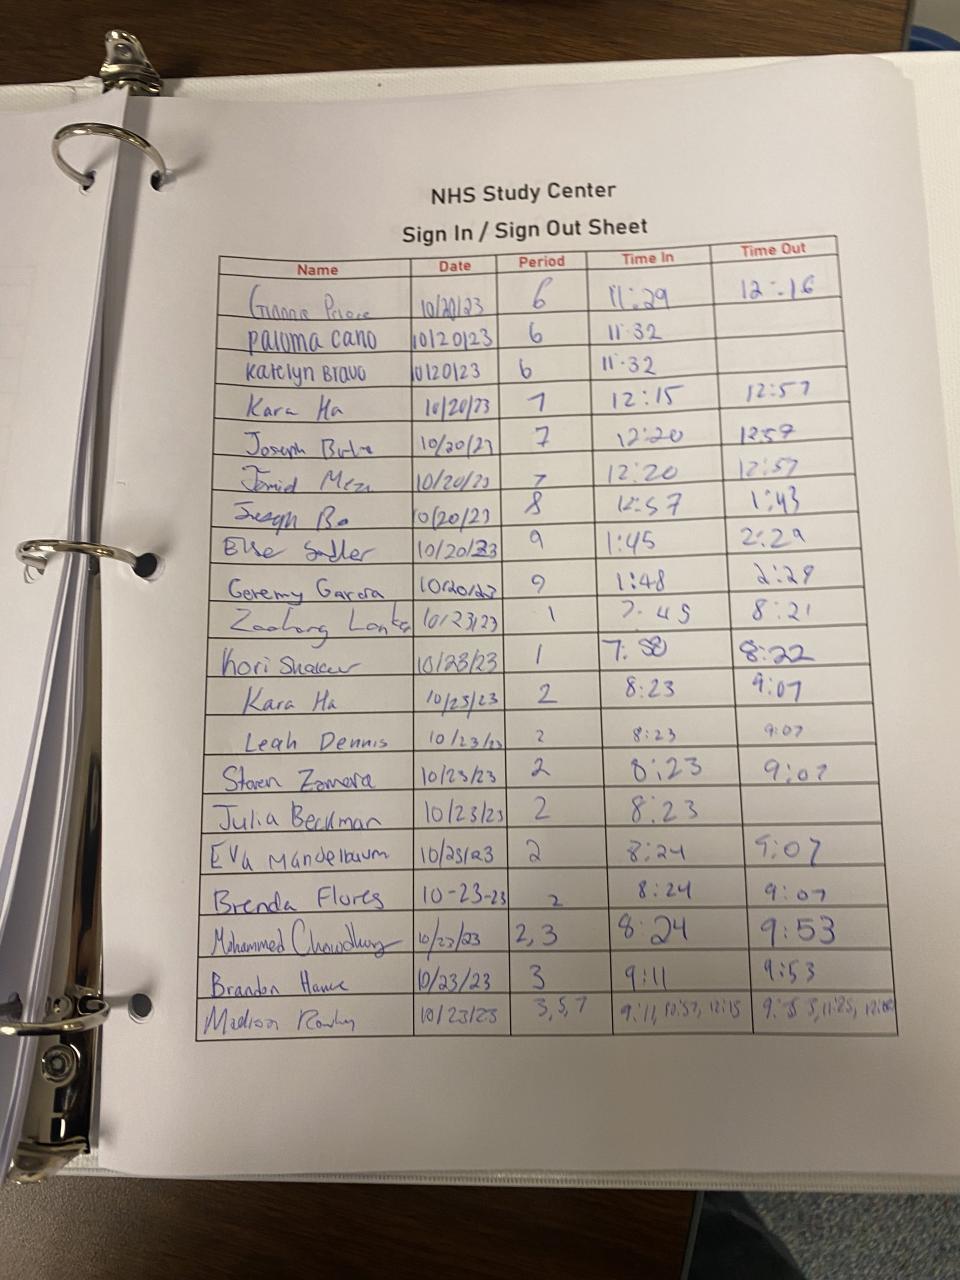 NHS Study Center
Sign In / Sign Out Sheet
Name Date Period Time In Time Out
10/20/23 6 11:29 12:16
paloma cano 10/20/23 6 11:32
Katelyn Bravo 10/20/23 6 11:32
Kara Ha 10/20/23 7 12:15 12:57
Joseph 10/20/23 7 12:20 12:57
10/20/23 7 12:20 12:57
Joseph 10/20/23 8 12:57 1:43
Sadler 10/20/23 9 1:45 2:29
Geremy Garcia 10/20/23 9 1:48 2:29
10/23/23 1 7:45 8:21
Kori 10/23/23 1 7:58 8:22
Kara Ha 10/23/23 2 8:23 9:07
Leah Dennis 10/23/23 2 8:23 9:07
Steven Zamora 10/23/23 2 8:23 9:07
Julia Beckman 10/23/23 2 8:23
Eva Mandelbaum 10/23/23 2 8:24 9:07
Brenda Flores 10-23-23 2 8:24 9:07
Mohammed Chowdhury 10/23/23 2,3 8:24 9:53
Brandon 10/23/23 3 9:11 9:53
Madison 10/23/23 3,5,7 9:11, 10:57, 12:15